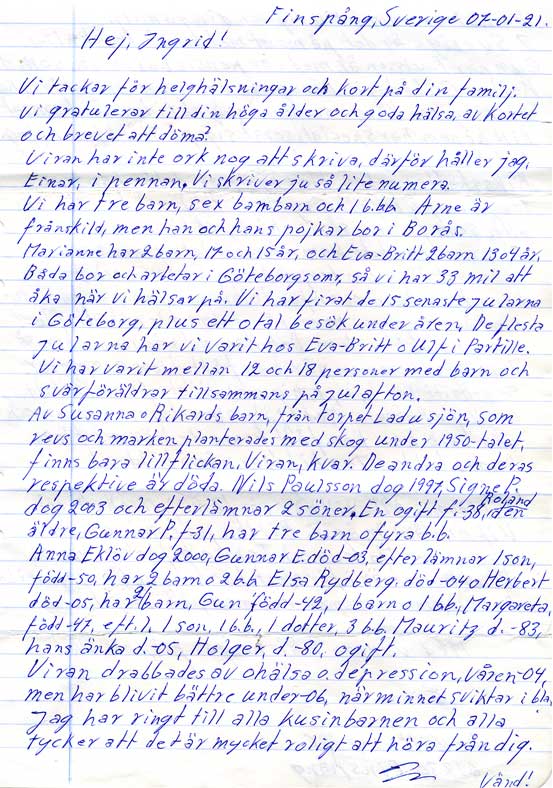 Finspång, Sverige 07-01-21.
Hej, Ingrid!
Vi tackar för helghälsningar och kort på din familj.
Vi gratulerar till din höga ålder och goda hälsa, av kortet
och brevet att döma?
Viran har inte ork nog att skriva, därför håller jag,
Einar, i pennan. Vi skriver ju så lite numera.
Vi har tre barn, sex barnbarn och 1 b.bb Arne är
frånskild, men han och hans pojkar bor i Borås.
Marianne har 2 barn, 17 och 15 år, och Eva-Britt 2 barn 13 o 4 år.
Båda bor och arbetar i Göteborgsomr, så vi har 33 mil att
åka när vi hälsar på. Vi har firat de 15 senaste jularna
i Göteborg, plus ett otal besök under åren. De flesta
jularna har vi varit hos Eva-Britt o Ulf i Partille.
Vi har varit mellan 12 och 18 personer med barn och
svärföräldrar tillsammans på julafton.
Av Susanna o Rikards barn, från torpet Ladusjön, som
revs och marken planterades med skog under 1950-talet,
finns bara lillflickan, Viran, kvar. De andra och deras
respektive är döda. Nils Paulsson dog 1997, Signe P.
dog 2003 och efterlämnar 2 söner. En ogift f.-38, Roland, den
äldre, Gunnar P. f-31, har tre barn o fyra b.b.
Anna Eklöv dog 2000, Gunnar E. död-03, efterlämnar 1 son,
född-50, har 2 barn o 2 b.b Elsa Rydberg. död-04 o Herbert
död-05, har 2 barn, Gun född-42, 1 barn o 1 bb, Margareta,
född-47, eft. l. 1 son, 1 b.b., 1 dotter, 3 b.b. Mauritz d. -83,
hans änka d.-05, Holger, d.-80, ogift.
Viran drabbades av ohälsa o. depression, våren-04,
men har blivit bättre under-06, närminnet sviktar i bla,
Jag har ringt till alla kusinbarnen och alla
tycker att det är mycket roligt att höra från dig.
Vänd!